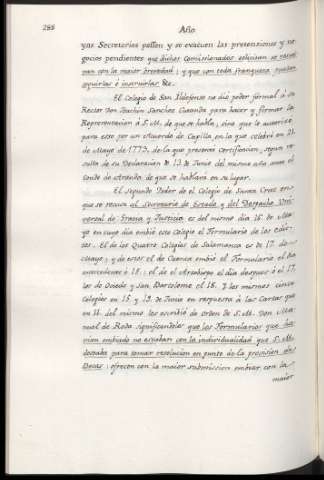 288
Año
yas Secretarias pasſen y se evacuen las pretensiones y ne-
gocios pendientes que dichos Comisionados solicitan se resuel-
van con la maior brevedad; y que con toda franqueza puedan
seguirlas é instruirlas &c.
El Colegio de San Ildefonso no dió poder formal á su
Rector Don Joachin Sanchez para hacer y formar la
Representacion á S. M. de que se habla, sino que le autorizó
para esto por un Acuerdo de Capilla en la que celebró en 21.
de Mayo de 1773. de la que presentó certificacion, segun re-
sulta de su Declaracion de 13 de Junio del mismo año ante el
Conde de Aranda: de que se hablará en su lugar.
El segundo Poder de el Colegio de Santa Cruz en
que se recusa al Secretario de Estado y del Despacho Uni-
versal de Gracia y Justicia es del mismo dia 16 de Ma-
yo en cuyo dia embió este Colegio el Formulario de los edic-
tos. El de los Quatro Colegios de Salamanca es de 17. de
Mayo; y de estos el de Cuenca embió el Formulario el dia
antecedente ó 16: el de el Arzobispo el dia despues ó el 17.
los de Oviedo y San Bartolomé el 18. Y los mismos cinco
Colegios en 15 y 19. de Junio en respuesta á las Cartas que
en 11. del mismo les escribió de orden de S. M. Don Ma-
nuel de Roda significandoles que los Formularios que ha-
vian embiado no estaban con la individualidad que S. M.
deseaba para tomar resolucion en punto de la provision de
Becas: ofrecen con la maior submission embiar con la
maior